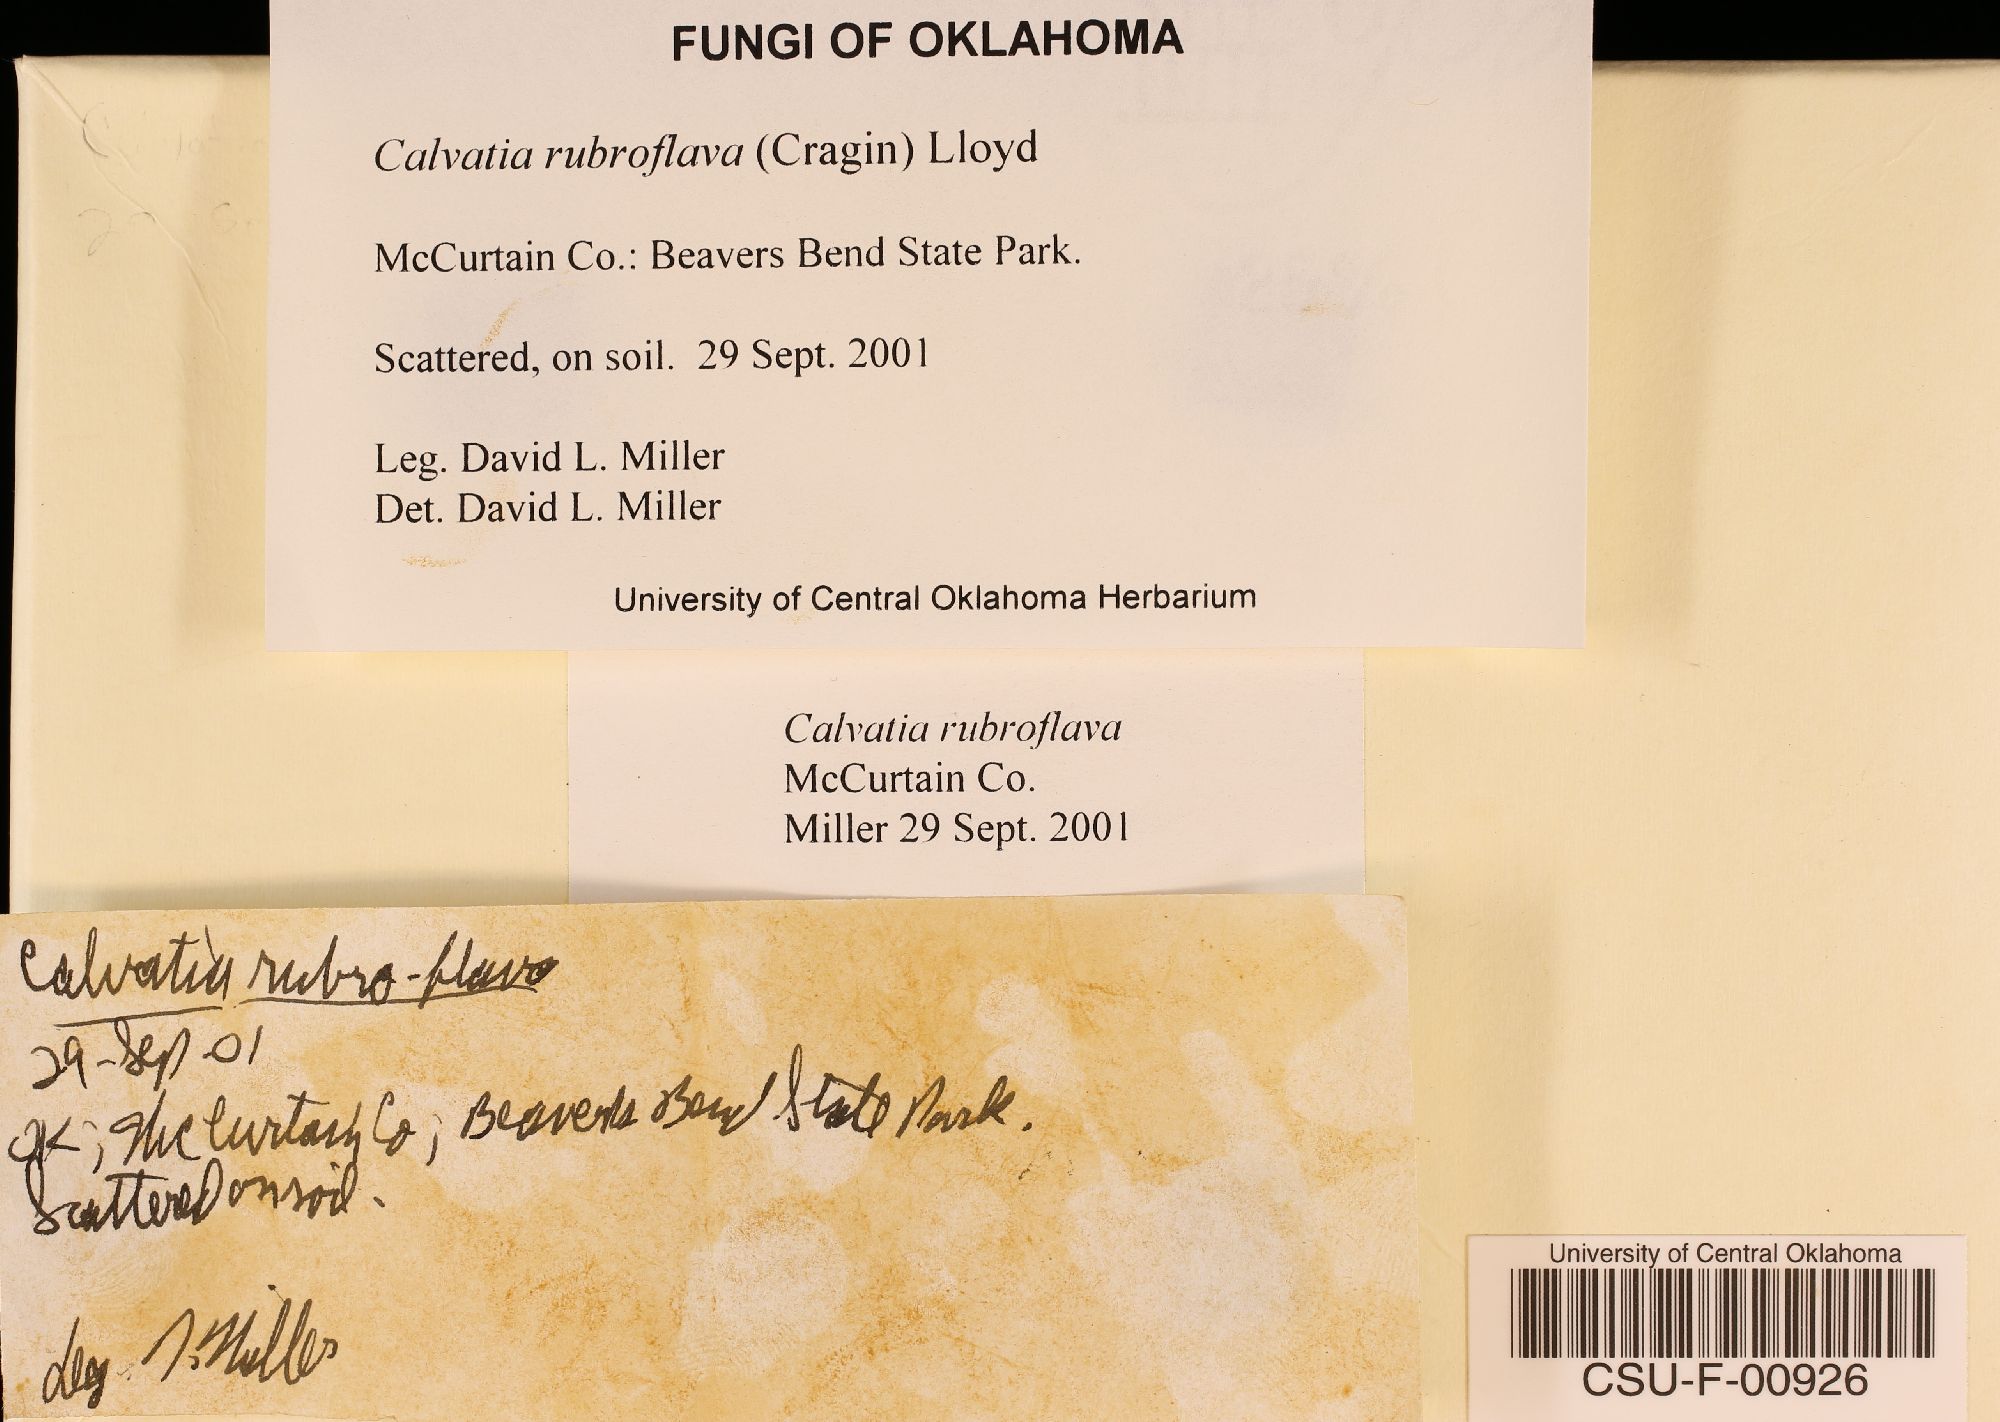 FUNGI OF OKLAHOMA
Calvatia rubroflava (Cragin) Lloyd
McCurtain Co.: Beavers Bend State Park.
Scattered, on soil. 29 Sept. 2001
Leg. David L. Miller
Det. David L. Miller
University of Central Oklahoma Herbarium
Calvatia rubroflava
McCurtain Co.
Miller 29 Sept. 2001
Calvatia rubro-flava
29-Sep 01
OK; McCurtain Co; Beavers Bend State Park.
Scattered on soil.
Leg D. Miller
University of Central Oklahoma
CSU-F-00926